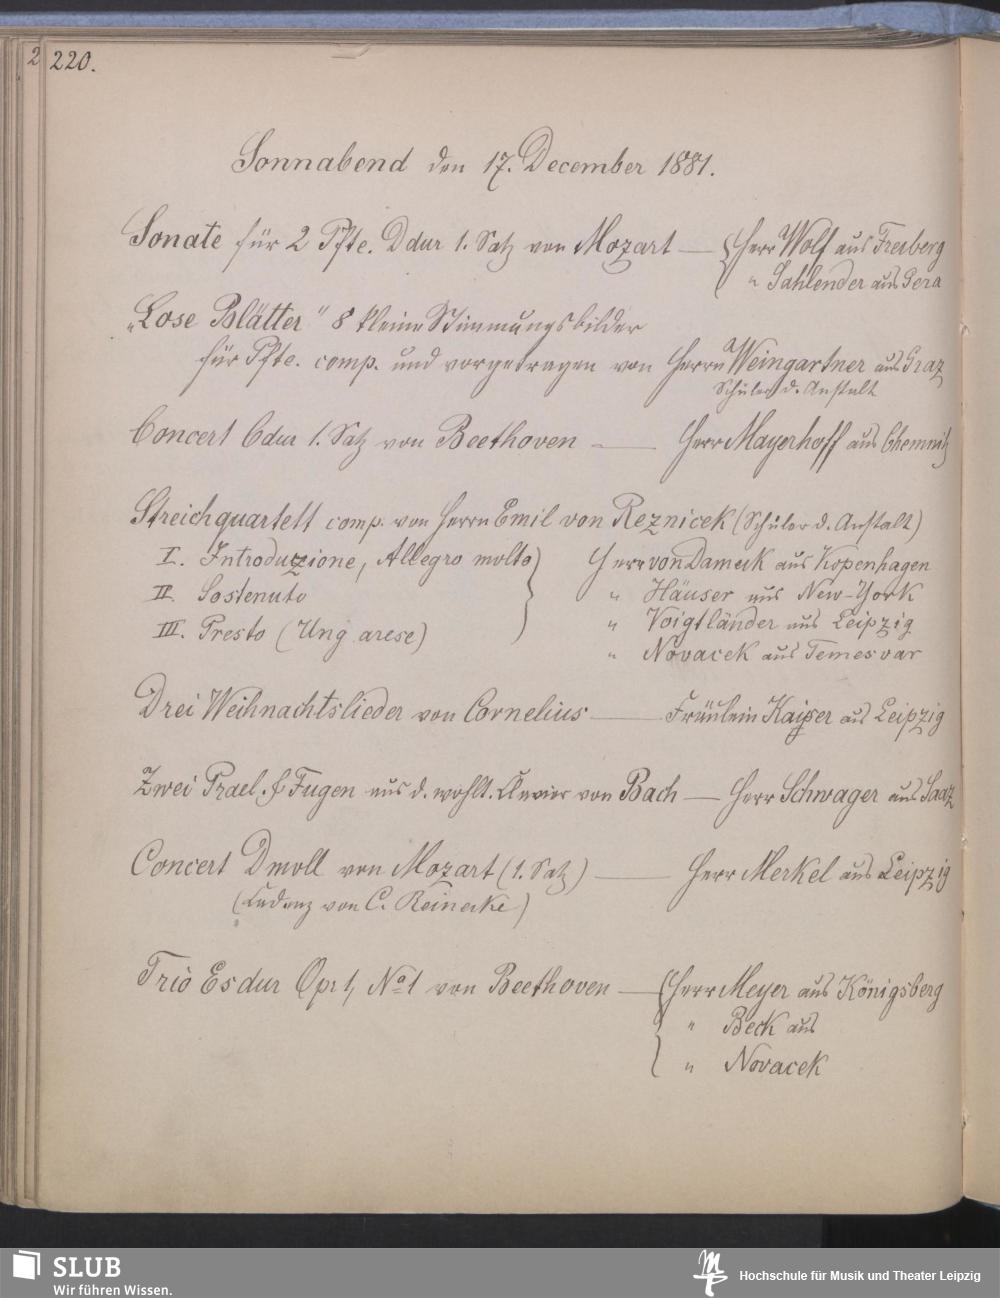 2
220.
Sonnabend den 17. December 1881.
Sonate für 2 Pfte. Ddur 1. Satz von Mozart — Herr Wolf aus Freiberg
" Sahlender aus Gera
„Lose Blätter" 8 kleine Stimmungsbilder
für Pfte. comp. und vorgetragen von Herrn Weingartner aus Graz
Schüler d. Anstalt
Concert Cdur 1. Satz von Beethoven — Herr Mayerhoff aus Chemnitz
Streichquartett comp. von Herrn Emil von Reznicek (Schüler d. Anstalt)
I. Introduzione, Allegro molto) Herr von Dameck aus Kopenhagen
II. Sostenuto " Häuser aus New-York
III. Presto (Ungarese) " Voigtländer aus Leipzig
" Novacek aus Temesvar
Drei Weihnachtslieder von Cornelius — Fräulein Kaiser aus Leipzig
Zwei Prael. & Fugen aus d. wohlt. Clavier von Bach — Herr Schwager aus Saaz
Concert Dmoll von Mozart (1. Satz) — Herr Merkel aus Leipzig
(Cadenz von C. Reinecke)
Trio Esdur Op. 1, No 1 von Beethoven — Herr Meyer aus Königsberg
" Beck aus
" Novacek
SLUB
Wir führen Wissen.
Hochschule für Musik und Theater Leipzig